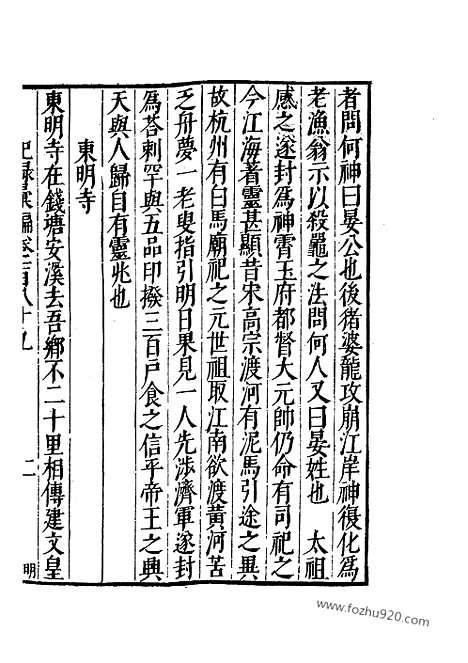 者問何神曰晏公也後猪婆龍攻崩江岸神復化爲
老漁翁示以殺黿之法問何人又曰晏姓也　太祖
感之遂封爲神霄玉府都督大元帥仍命有司祀之
今江海著靈甚顯昔宋高宗渡河有泥馬引途之異
故杭州有白馬廟祀之元世祖取江南欲渡黄河苦
乏舟夢一老叟指引明日果見一人先涉濟軍遂封
爲荅剌罕與五品印撥三百戶食之信乎帝王之興
天與人歸自有靈兆也
東明寺
東明寺在錢塘安溪去吾鄉不二十里相傳建文皇
紀録彙編卷之一百八十九
二
明
www.fozhu920.com